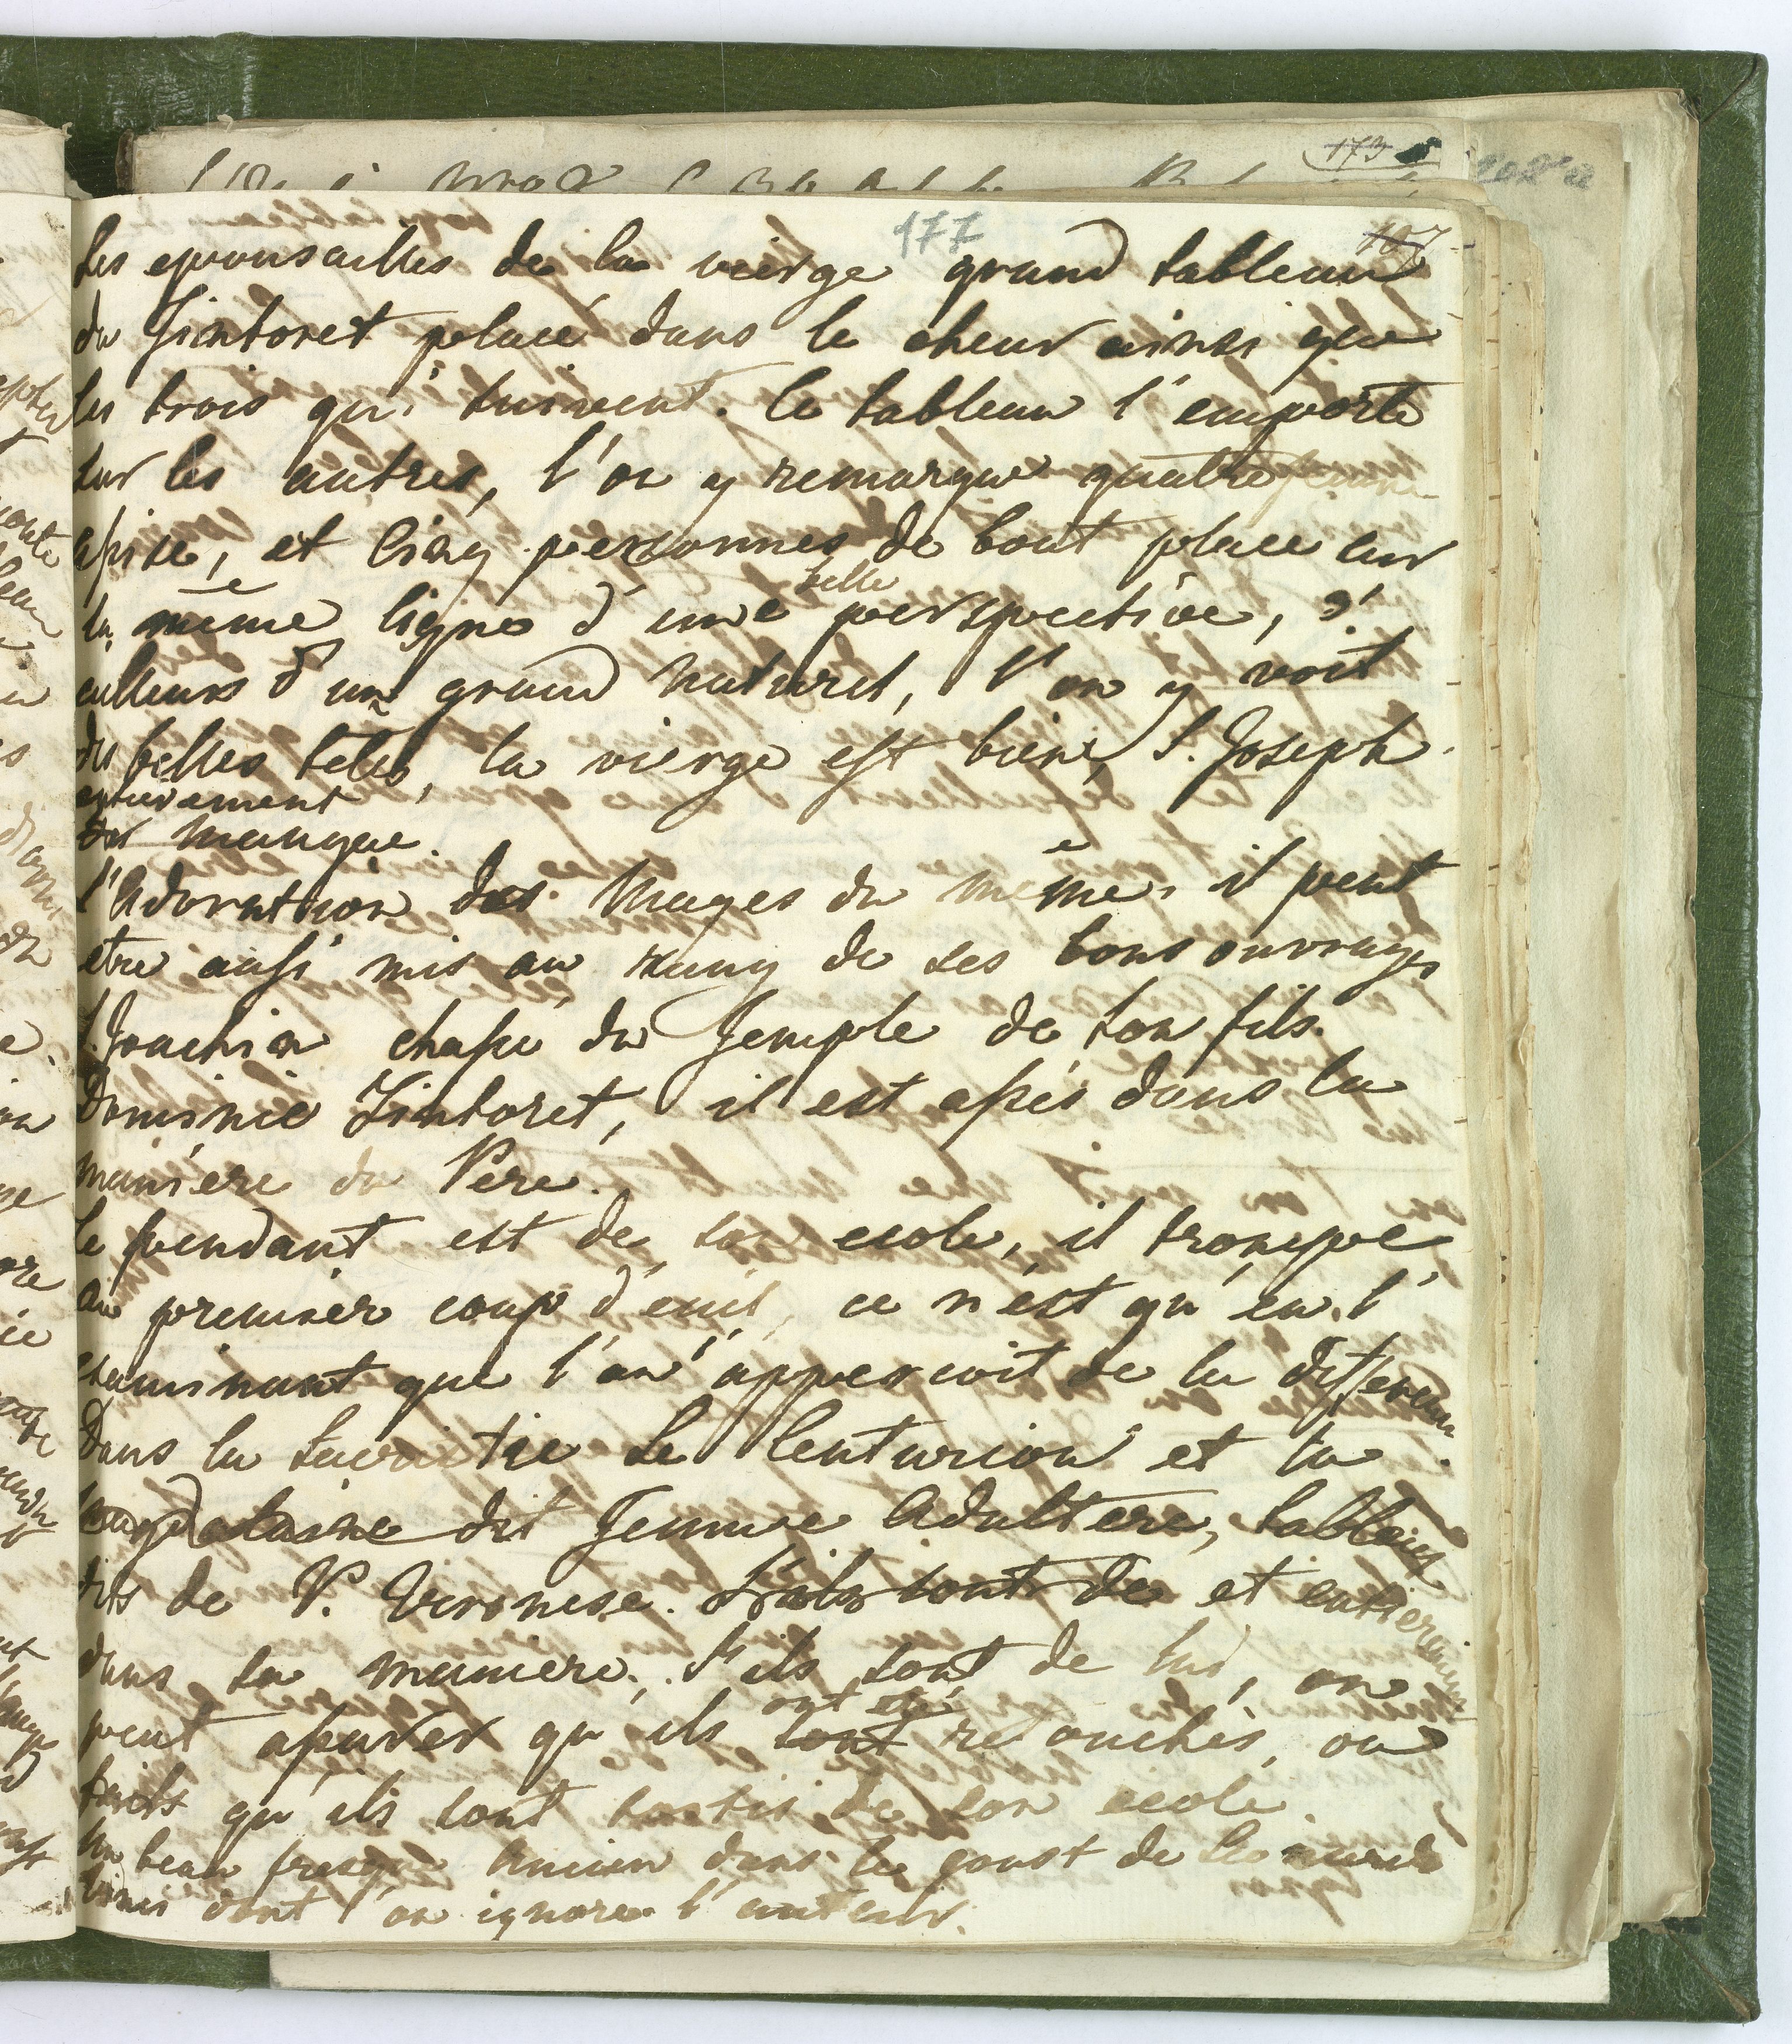 177
les epousailles de la vierge grand tableau
du Tintoret placé dans le cheur ainsi que
les trois qui suivent. Ce tableau l'emporte
sur les autres, l'on y remarque quatre
assise, et Cinq personnes de bout place sur
la même ligne d'une belle perspective, d'
ailleurs d'un grand naturel, l'on y voit
des belles tetes, la vierge est bien, S. Joseph
manque.
l'Adoration des Mages du même, il peut
etre aussi mis au rang de ses bons ouvrages
S. Joachin chassé du Temple de son fils
Dominic Tintoret, il est assés dans la
maniere du Pere.
Le pendant est de son ecole, il trompe
au premier coup d'euil, ce n'est qu'en l'
examinant que l'on appercoit de la differen
Dans la Sacristie le Centurion et la
magdelaine dit Femme Adultere, tableaux
dits de P. Veronese. S'ils sont de et entierement
dans sa maniere, s'ils sont de lui, on
peut assurer qu'ils sont ont eté retouchés, ou
qu'ils sont sortis de son ecole.
Un beau fresque Ancien dans le goust de Leonard
Vinci dont l'on ignore l'auteur.